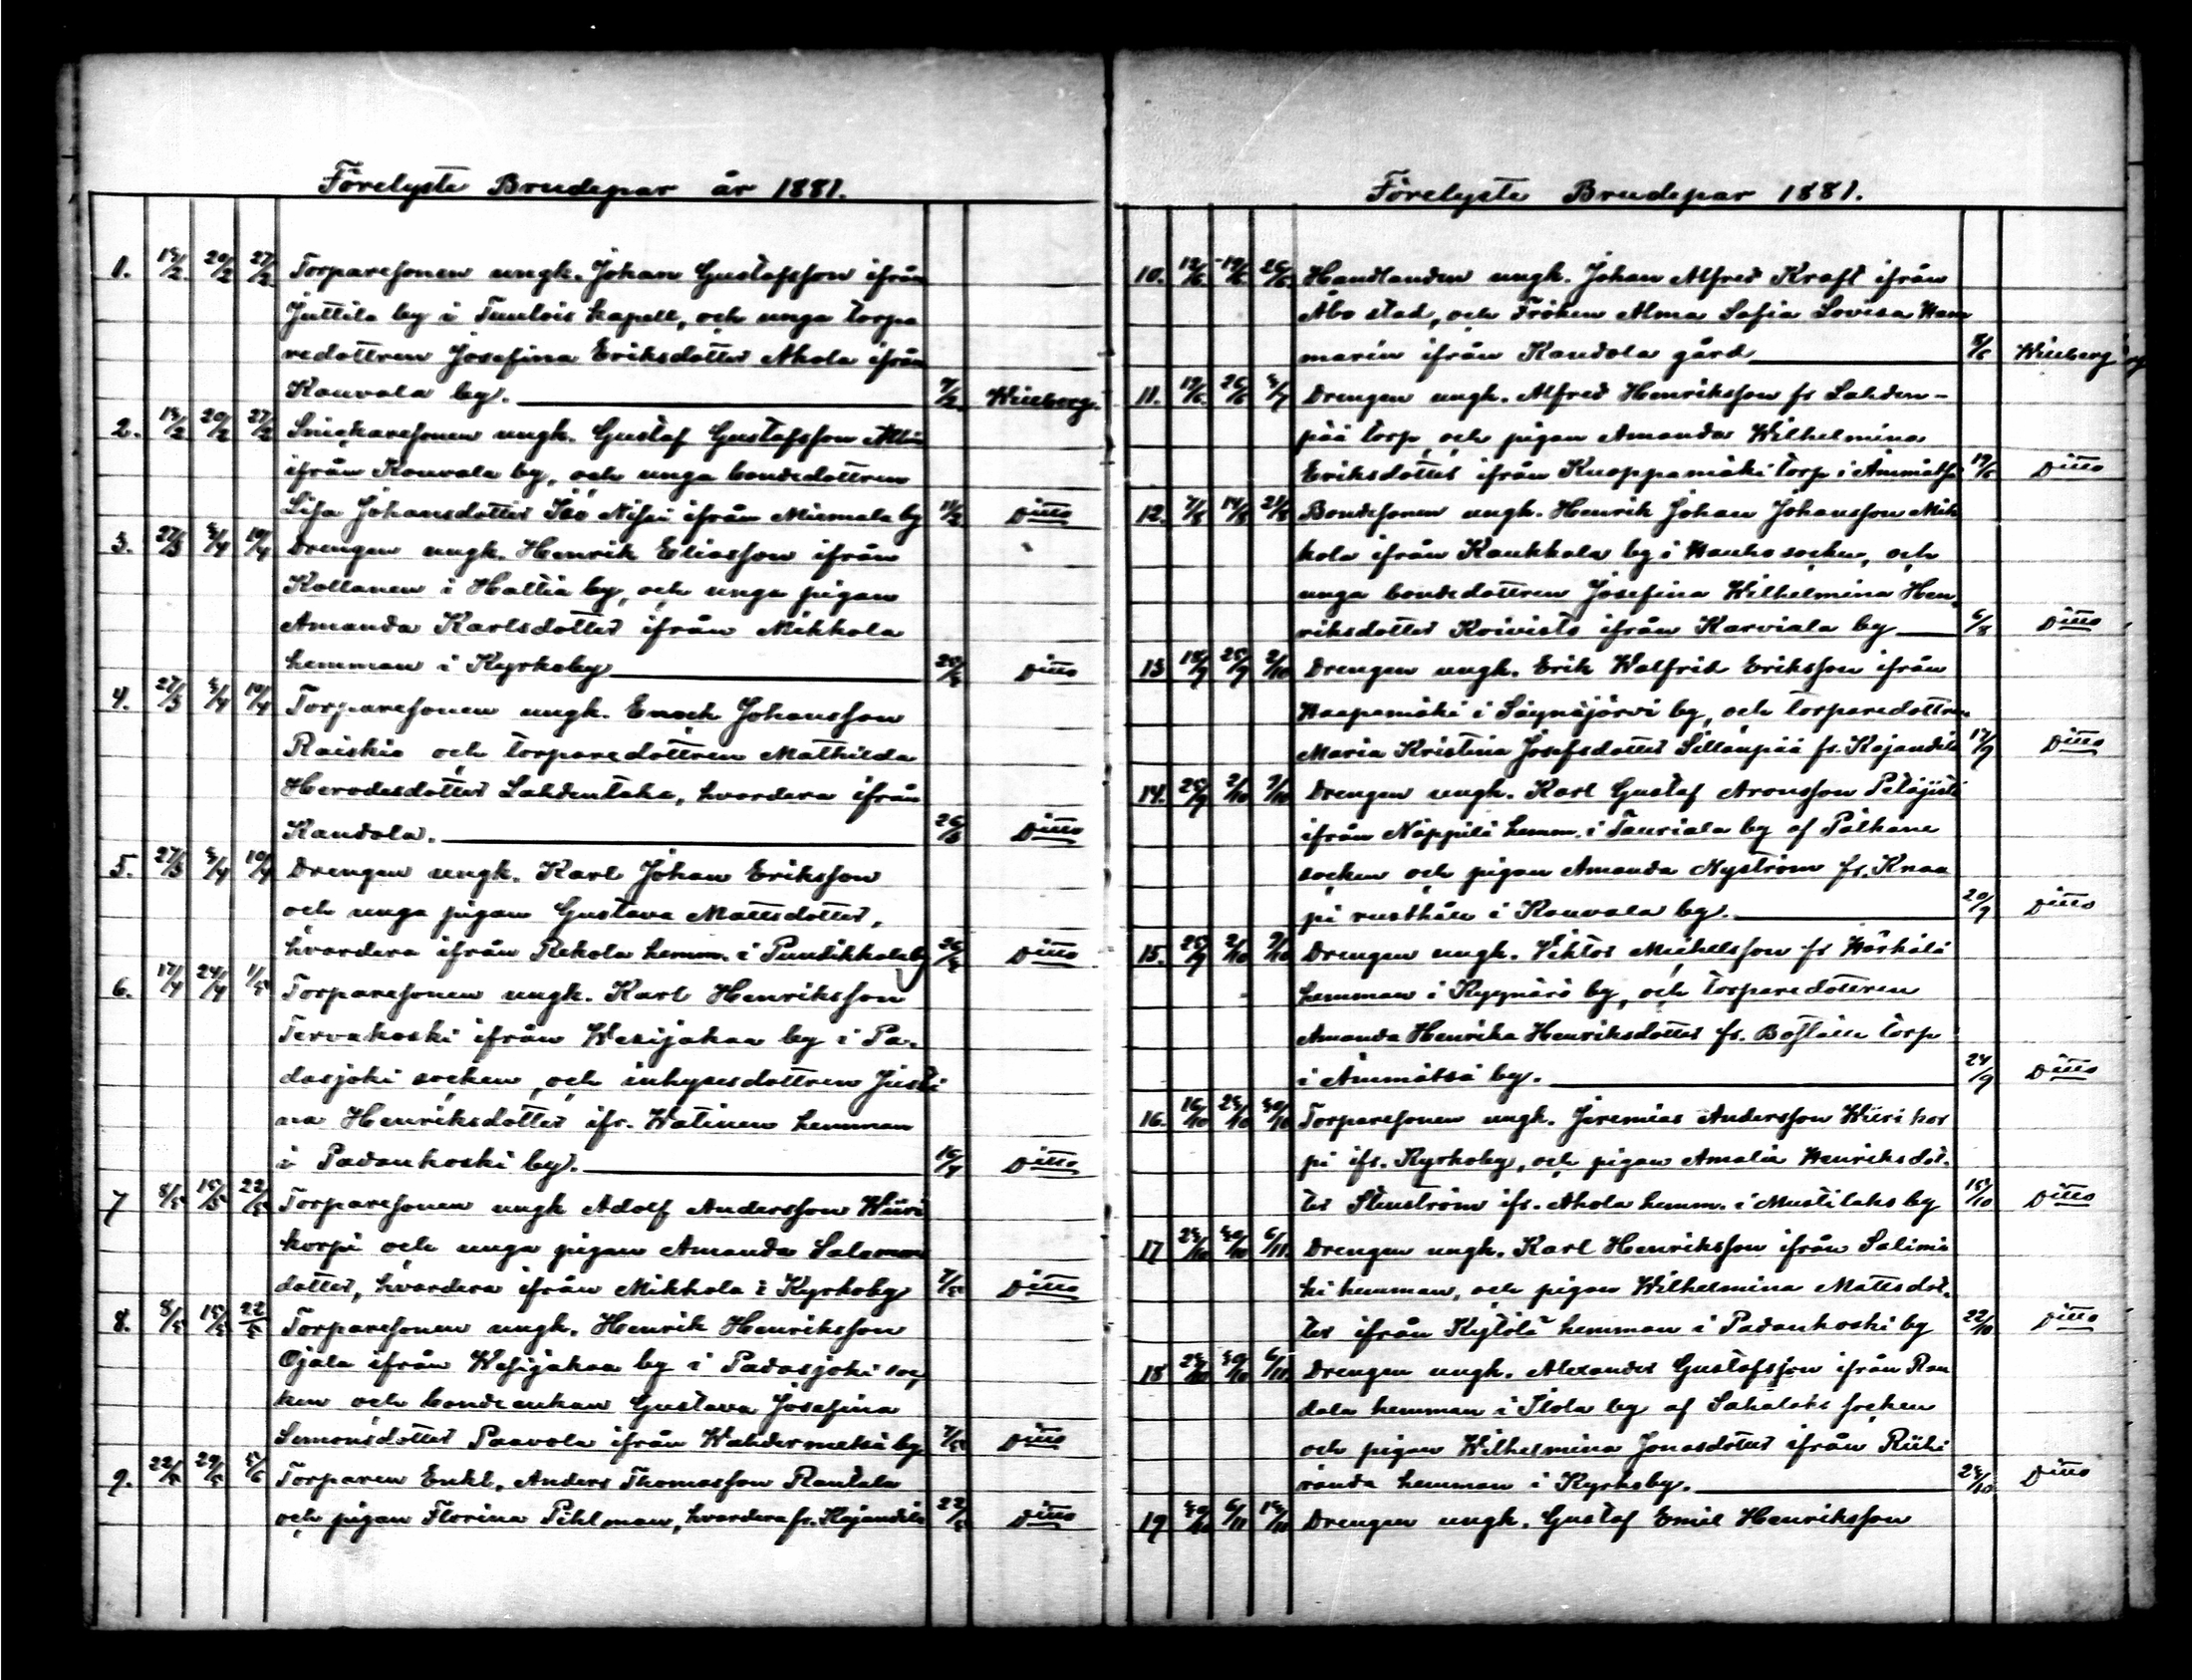 Förelyste Brudepar år 1881.
1. 13/2 20/2 27/2 Torparesonen ungk. Johan Gustafsson ifrån
Juttila by i Tuulois kapell, och unga torpa
redottren Josefina Eriksdotter Ahola ifrån
Kouvala by. 7/2. Willberg.
2. 13/2 20/2 27/2 Snickaresonen ungk. Gustaf Gustafsson
ifrån Kouvala by, och unga bondedottren
Lisa Johansdotter Iso Nissi ifrån Miemala by 11/2 Ditto
3. 27/3 3/4 10/4 Drengen ungk. Henrik Eliasson ifrån
Kollanen i Hattia by, och unga pigan
Amanda Karlsdotter ifrån Mikkola
hemman i Kyrkoby 25/3 Ditto
4. 27/3 3/4 10/4 Torparesonen ungk. Enock Johansson
Raiskio och torparedottren Mathilda
Herodesdotter Lahdentaka, hvardera ifrån
Kandola. 26/3 Ditto
5. 27/3 3/4 10/4 Drengen ungk. Karl Johan Eriksson
och unga pigan Gustava Mattsdotter,
hvardera ifrån Rekola hemm. i Puudikkala by 26/3 Ditto
6. 17/4 24/4 1/5 Torparesonen ungk. Karl Henriksson
Tervakoski ifrån Wesijakaa by i Pa-
dasjoki socken, och inhysesdottren Justi
na Henriksdotter ifr. Watinen hemman
i Padankoski by. 16/4 Ditto
7 8/5 15/5 22/5 Torparesonen ungk Adolf Andersson Wuori
korpi och unga pigan Amanda Salomons
dotter, hvardera ifrån Mikkola i Kyrkoby 7/5 Ditto
8. 8/5 15/5 22/5 Torparesonen ungk. Henrik Henriksson
Ojala ifrån Wesijakaa by i Padasjoki soc
ken och bondeenkan Gustava Josefina
Simonsdotter Paavola ifrån Wahdermetsä by 7/5 Ditto
9. 22/5 29/5 5/6 Torparen Enkl. Anders Thomasson Rantala
och pigan Florina Pihlman, hvardera fr. Kajandila 22/5 Ditto
Förelyste Brudepar 1881.
10. 12/6 19/6 26/6 Handlanden ungk. Johan Alfred Kraft ifrån
Åbo stad, och Fröken Alma Sofia Lovisa Wan
marin ifrån Kandola gård 8/6 Willberg
11. 19/6 26/6 3/7 Drengen ungk. Alfred Henriksson fr Lahden-
pää torp, och pigan Amanda Wilhelmina
Eriksdotter ifrån Knoppamäki torp i Ämmätsä 19/6 Ditto
12. 7/8 14/8 21/8 Bondesonen ungk. Henrik Johan Johansson Mik
kola ifrån Kaukkala by i Hauho socken, och
unga bondedottren Josefina Wilhelmina Hen
riksdotter Koivisto ifrån Karviala by 6/8 Ditto
13 18/9 25/9 2/10 Drengen ungk. Erik Walfrid Eriksson ifrån
Haapamäki i Säynäjärvi by, och torparedottren
Maria Kristina Josefsdotter Sillanpää fr. Kajandila 17/9 Ditto
14. 25/9 2/10 9/10 Drengen ungk. Karl Gustaf Aronsson Petäjistö
ifrån Näppilä hemm. i Tauriala by af Pälkäne
socken och pigan Amanda Nyström fr. Knaa
pi rusthåll i Kouvala by. 20/9 Ditto
15. 25/9 2/10 9/10 Drengen ungk. Viktor Mickelsson fr Härkälä
hemman i Kyynärö by, och torparedottren
Amanda Henrika Henriksdotter fr. Boställe torp
i Ämmätsä by. 24/9 Ditto
16. 16/10 23/10 30/10 Torparesonen ungk. Jeremias Andersson Wuori kor
pi ifr. Kyrkoby, och pigan Amalia Henriksdot-
ter Stenström ifr. Ahola hemm. i Mustilaks by 15/10 Ditto
17 23/10 30/10 6/11 Drengen ungk. Karl Henriksson ifrån Salimä
ki hemman, och pigan Wilhelmina Mattsdot-
ter ifrån Kytölä hemman i Padankoski by 22/10 Ditto
18 23/10 30/10 6/11 Drengen ungk. Alexander Gustafsson ifrån Ran
dala hemman i Isola by af Sahalaks socken
och pigan Wilhelmina Jonasdotter ifrån Riihi
randa hemman i Kyrkoby. 23/10 Ditto
19 30/10 6/11 13/11 Drengen ungk. Gustaf Emil Henriksson